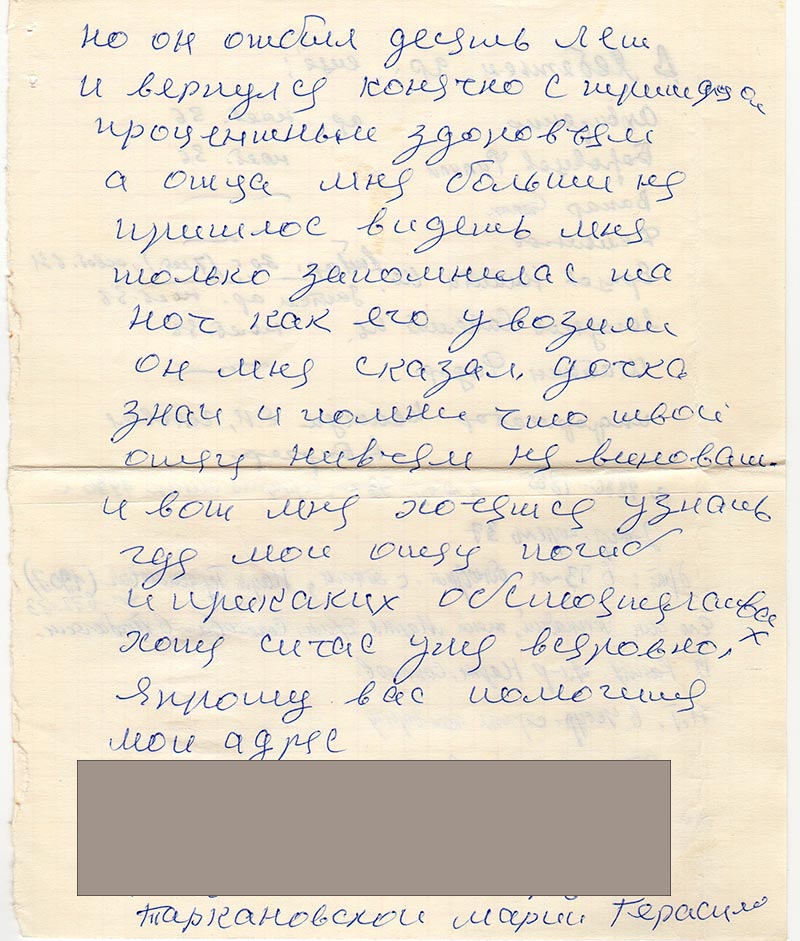 но он отбыл десять лет
и вернулся конечно с тридцати
процентным здоровьем
а отца мне больши не
пришлос видеть мне
только запомнилас та
ноч как его увозили
он мне сказал, дочка
знаи и помни что твои
отец нивчем не виноват.
и вот мне хочется узнать
где мои отец погиб
и прикаких обстоятельствах
хотя сичас уже всеровно,
япрошу вас помогите
мои адрес
Таркановскои марии Герасимо